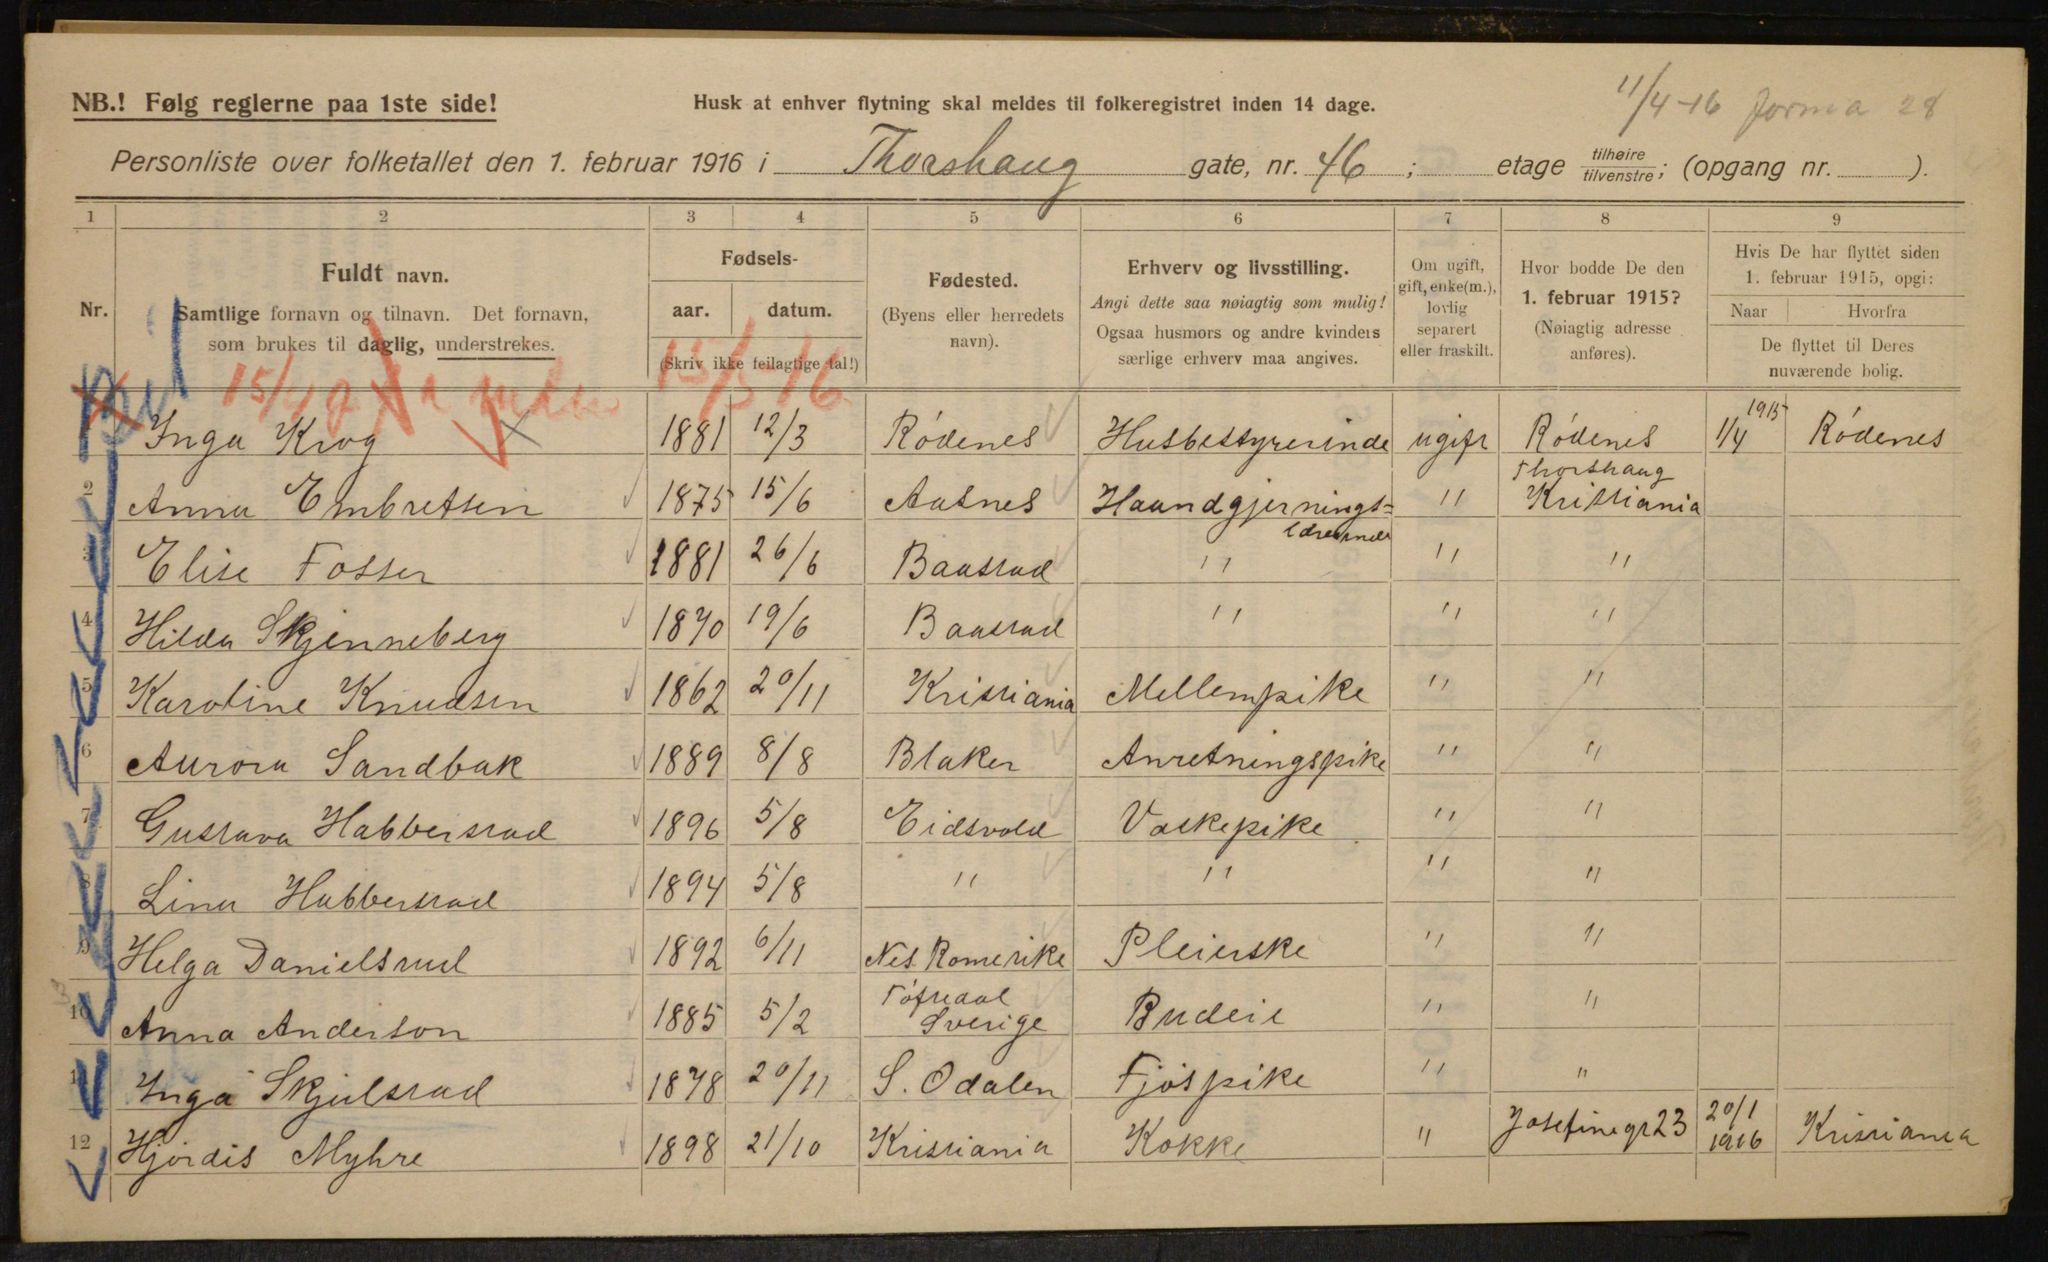 11/4-16 28
NB.! Følg reglerne paa 1ste side!
Husk at enhver flytning skal meldes til folkeregistret inden 14 dage.
Personliste over folketallet den 1. februar 1916 i Thorshaug gate, nr. 46; etage tilhøire/tilvenstre; (opgang nr. ).
1 2 3 4 5 6 7 8 9
Nr.
Fuldt navn.
Samtlige fornavn og tilnavn. Det fornavn,
som brukes til daglig, understrekes.
Fødsels-
aar. datum.
(Skriv ikke feilagtige tal!)
Fødested.
(Byens eller herredets
navn).
Erhverv og livsstilling.
Angi dette saa nøiagtig som mulig!
Ogsaa husmors og andre kvinders
særlige erhverv maa angives.
Om ugift,
gift, enke(m.),
lovlig
separert
eller fraskilt.
Hvor bodde De den
1. februar 1915?
(Nøiagtig adresse
anføres).
Hvis De har flyttet siden
1. februar 1915, opgi:
Naar Hvorfra
De flyttet til Deres
nuværende bolig.
15/4 15/5 16
Inga Krog 1881 12/3 Rödenes Husbestyrerinde ugift Rödenes 1/4 1915 Rödenes
2 Anna Embretsen 1875 15/6 Aasnes Haandgjernings= lærerinde " Thorshaug Kristiania
3 Elise Fosser 1881 26/6 Baastad " " "
4 Hilda Skjenneberg 1870 19/6 Baastad " " "
5 Karoline Knudsen 1862 20/11 Kristiania Mellempike " "
6 Aurora Sandbak 1889 8/8 Blaker Anretningspike " "
7 Gustava Habberstad 1896 5/8 Eidsvold Vaskepike " "
8 Lina Habberstad 1894 5/8 " " " "
9 Helga Danielsrud 1892 6/11 Nes Romerike Pleierske " "
10 Anna Anderson 1885 5/2 Töftedal Sverige Budeie " "
11 Inga Skjulstad 1878 20/11 S. Odalen Fjöspike " "
12 Hjördis Myhre 1898 21/10 Kristiania Kokke " Josefinegt 23 20/1 1916 Kristiania